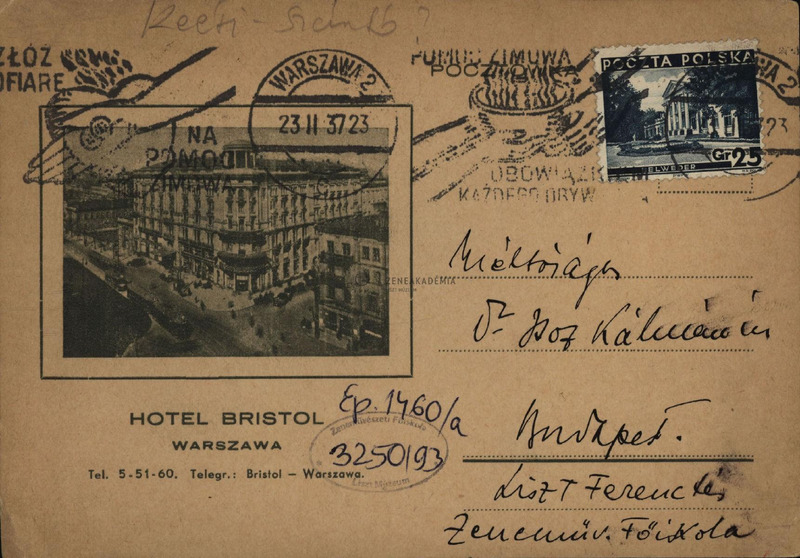 ZŁÓŻ
OFIARĘ
NA
POMOC
ZIMOWĄ
WARSZAWA 2
23 II 37 23
POMOC ZIMOWA
OBOWIĄZKIEM
KAŻDEGO OBYW
POCZTÓWKA
POCZTA POLSKA
BELWEDER
Gr 25
ZENEAKADÉMIA
HOTEL BRISTOL
WARSZAWA
Tel. 5-51-60. Telegr.: Bristol – Warszawa.
Ep. 1460/a
Zeneművészeti Főiskola
3250/93
Liszt Múzeum
Méltóságos
Dr Isoz Kálmán úr
Budapest.
Liszt Ferenc tér
Zeneműv. Főiskola